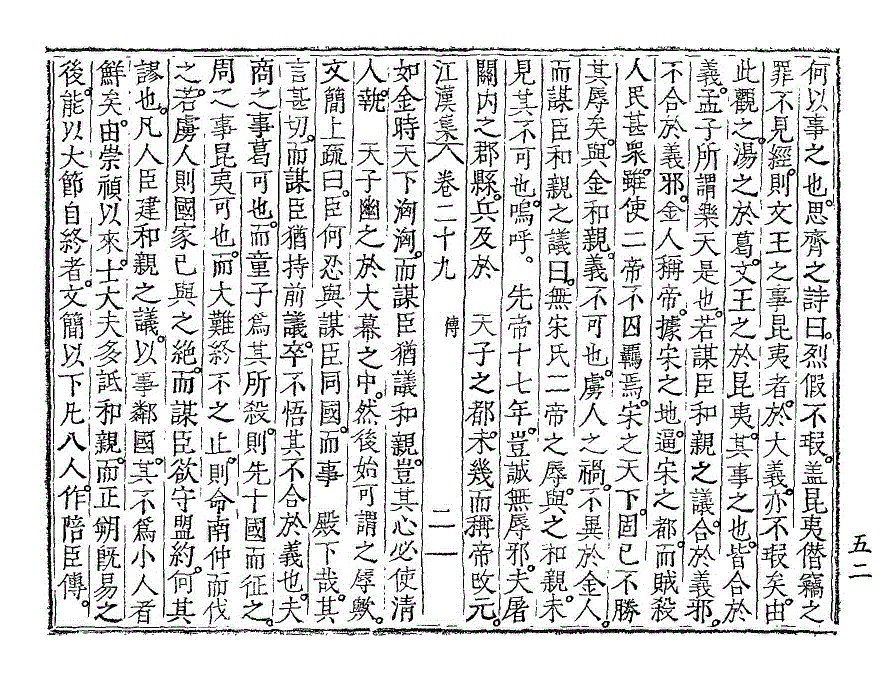 何以事之也。思齊之詩曰。烈假不瑕。盖昆夷僣竊之
罪不見經。則文王之事昆夷者。於大義。亦不瑕矣。由
此觀之。湯之於葛。文王之於昆夷。其事之也。皆合於
義。孟子所謂樂天是也。若謀臣和親之議。合於義邪。
不合於義邪。金人稱帝。據宋之地。逼宋之都。而賊殺
人民甚衆。雖使二帝不囚羈焉。宋之天下。固已不勝
其辱矣。與金和親。義不可也。虜人之禍。不異於金人。
而謀臣和親之議曰。無宋氏二帝之辱。與之和親。未
見其不可也。嗚呼。 先帝十七年。豈誠無辱邪。夫屠
關内之郡縣。兵及於 天子之都。未幾而稱帝改元。
江漢集 卷二十九 傳 二一
如金時天下洶洶。而謀臣猶議和親。豈其心必使清
人執 天子幽之於大幕之中。然後始可謂之辱歟。
文簡上疏曰。臣何忍與謀臣同國。而事 殿下哉。其
言甚切。而謀臣猶持前議。卒不悟其不合於義也。夫
商之事葛可也。而童子爲其所殺。則先十國而征之。
周之事昆夷可也。而大難終不之止。則命南仲而伐
之。若虜人則國家已與之絶。而謀臣欲守盟約。何其
謬也。凡人臣建和親之議。以事鄰國。其不爲小人者
鮮矣。由崇禎以來。士大夫多詆和親。而正朔旣易之
後。能以大節自終者。文簡以下凡八人。作陪臣傳。
五二